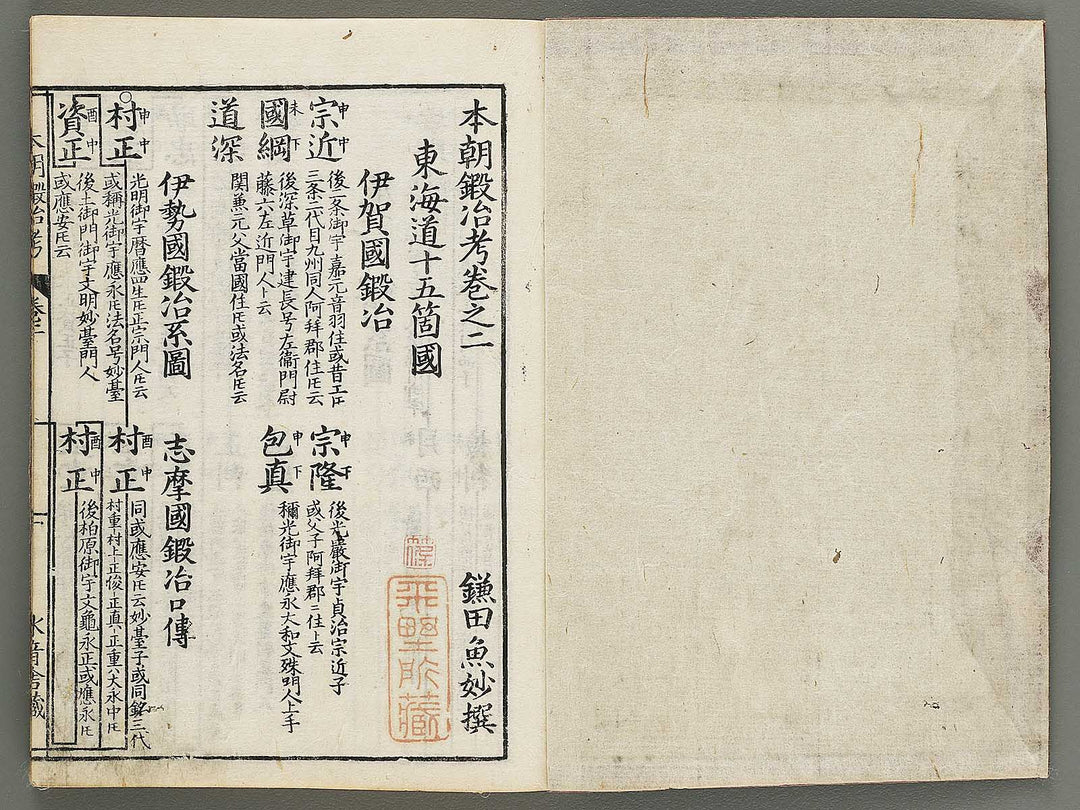 本朝鍛冶考巻之二
鎌田魚妙撰
東海道十五箇國
伊賀國鍛冶
宗近
申中
後二条御宇嘉元音羽住或昔工𪜈
三条二代目九州同人阿拜郡住𪜈云
宗隆
申下
後光嚴御宇貞治宗近子
或父子阿拜郡ニ住ト云
國綱
未下
後深草御宇建長号左衞門尉
藤六左近門人ト云
包真
申下
稱光御宇應永大和文殊門人上手
道深
関兼元父當國住𪜈或法名𪜈云
伊勢國鍛冶系圖
志摩國鍛冶口傳
村正
申中
光明御宇暦應四生𪜈正宗門人𪜈云
或稱光御宇應永𪜈法名号妙臺
村正
酉中
同或應安𪜈云妙臺子或同銘三代
村重村上正俊正真正重六大永中𪜈
資正
酉中
後土御門御宇文明妙臺門人
或應安𪜈云
村正
酉中
後柏原御宇文龜永正或應永𪜈
本朝鍛冶考
巻二
一
水音舎藏